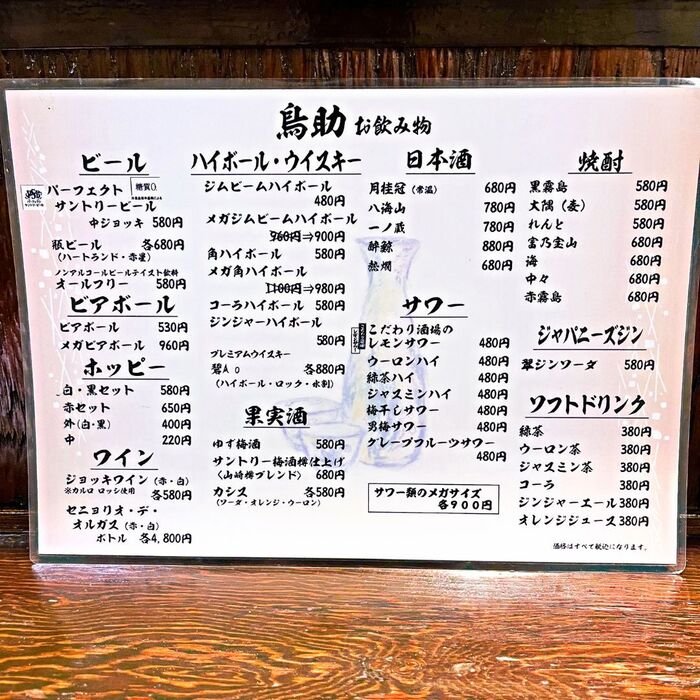 鳥助 お飲み物
ビール
パーフェクト 糖質0
サントリービール
中ジョッキ 580円
瓶ビール 各680円
(ハートランド・赤星)
ノンアルコールビールテイスト飲料
オールフリー 580円
ビアボール
ビアボール 530円
メガビアボール 960円
ホッピー
白・黒セット 580円
赤セット 650円
外(白・黒) 400円
中 220円
ワイン
ジョッキワイン (赤・白)
※カルロ ロッシ使用 各580円
セニョリオ・デ・
オルガス (赤・白)
ボトル 各4,800円
ハイボール・ウイスキー
ジムビームハイボール
480円
メガジムビームハイボール
960円⇒900円
角ハイボール 580円
メガ角ハイボール
1100円⇒980円
コーラハイボール 580円
ジンジャーハイボール
580円
プレミアムウイスキー
碧Ao 各880円
(ハイボール・ロック・水割)
果実酒
ゆず梅酒 580円
サントリー梅酒樽仕上げ
〈山崎樽ブレンド〉 680円
カシス 各580円
(ソーダ・オレンジ・ウーロン)
日本酒
月桂冠 (常温) 680円
八海山 780円
一ノ蔵 780円
酔鯨 880円
熱燗 680円
サワー
こだわり酒場の
レモンサワー 480円
ウーロンハイ 480円
緑茶ハイ 480円
ジャスミンハイ 480円
梅干しサワー 480円
男梅サワー 480円
グレープフルーツサワー
480円
サワー類のメガサイズ
各900円
焼酎
黒霧島 580円
大隅 (麦) 580円
れんと 580円
富乃宝山 680円
海 680円
中々 680円
赤霧島 680円
ジャパニーズジン
翠ジンソーダ 580円
ソフトドリンク
緑茶 380円
ウーロン茶 380円
ジャスミン茶 380円
コーラ 380円
ジンジャーエール 380円
オレンジジュース 380円
価格はすべて税込になります。